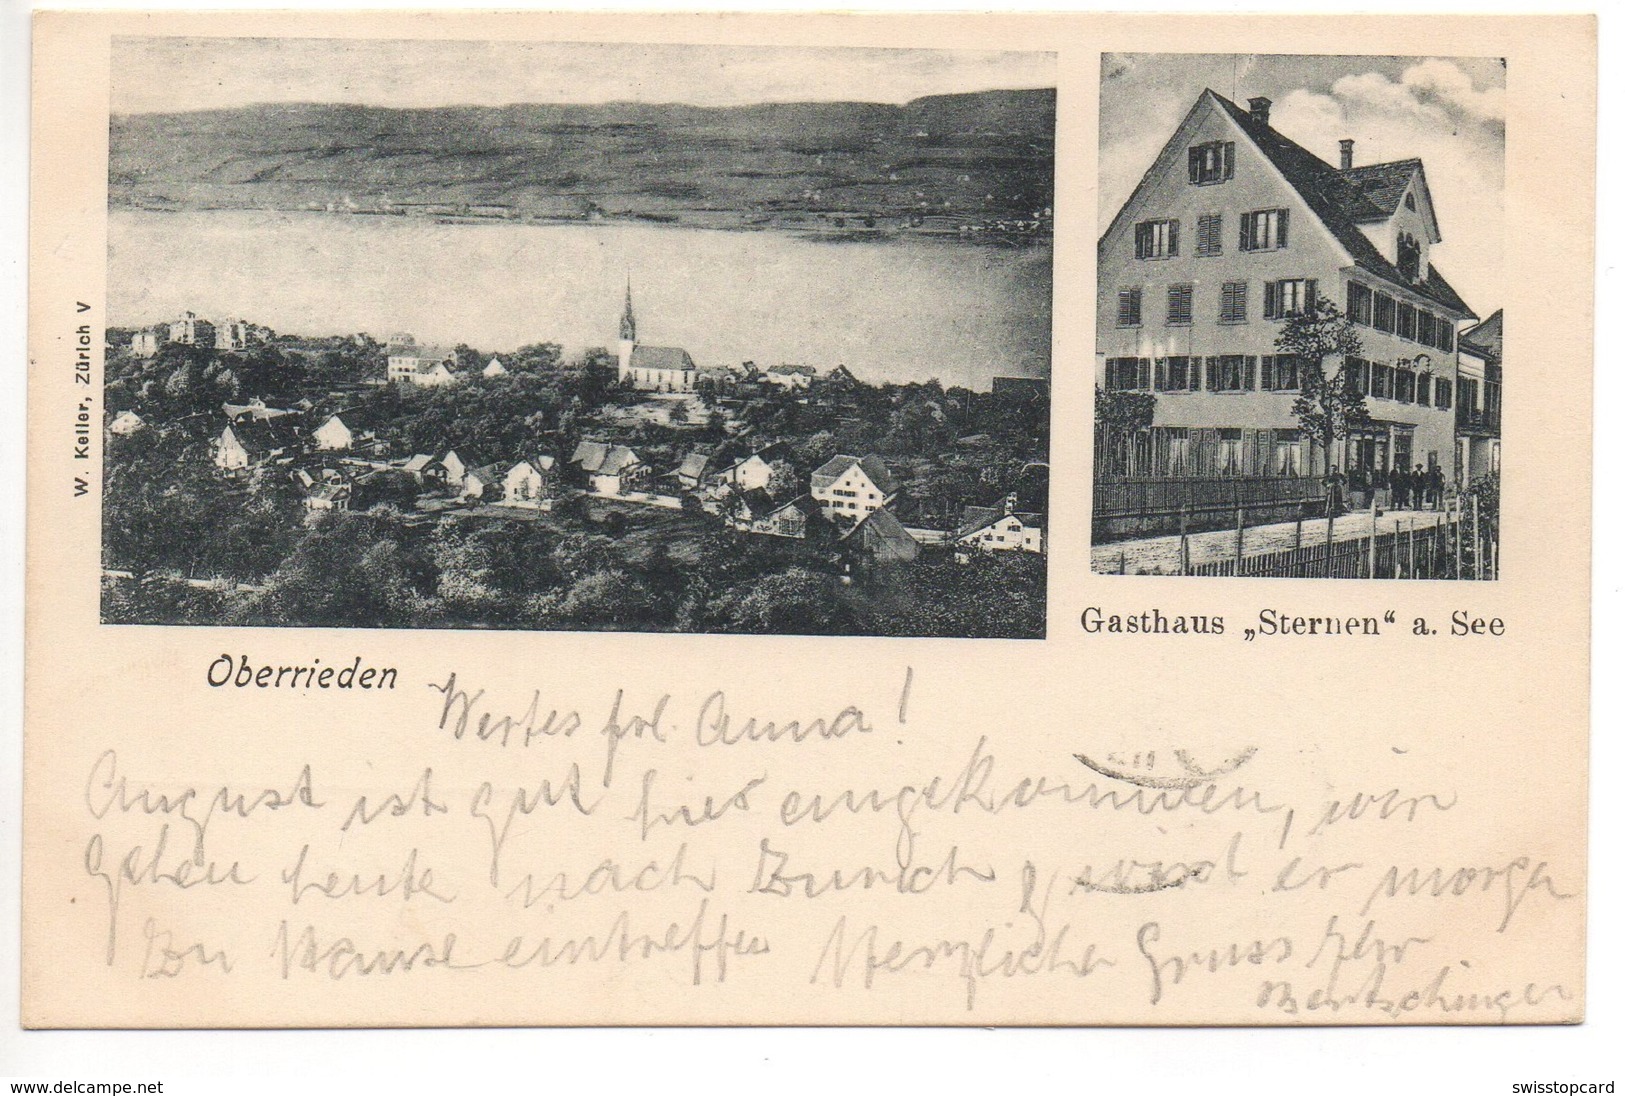 W. Keller, Zürich V
Oberrieden
Gasthaus „Sternen“ a. See
Wertes frl. Anna!
August ist gut hier eingekommen, wir
gehen heute nach Zürich & wird er morgen
zu Hause eintreffen Herzlicher Gruss Ihr
Bentschinger
www.delcampe.net
swisstopcard